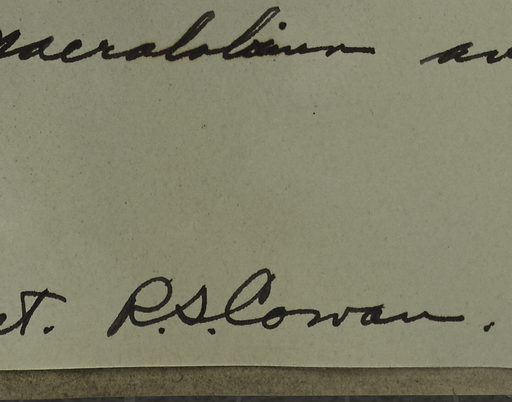 Macrolobium
et. R.S. Cowan.